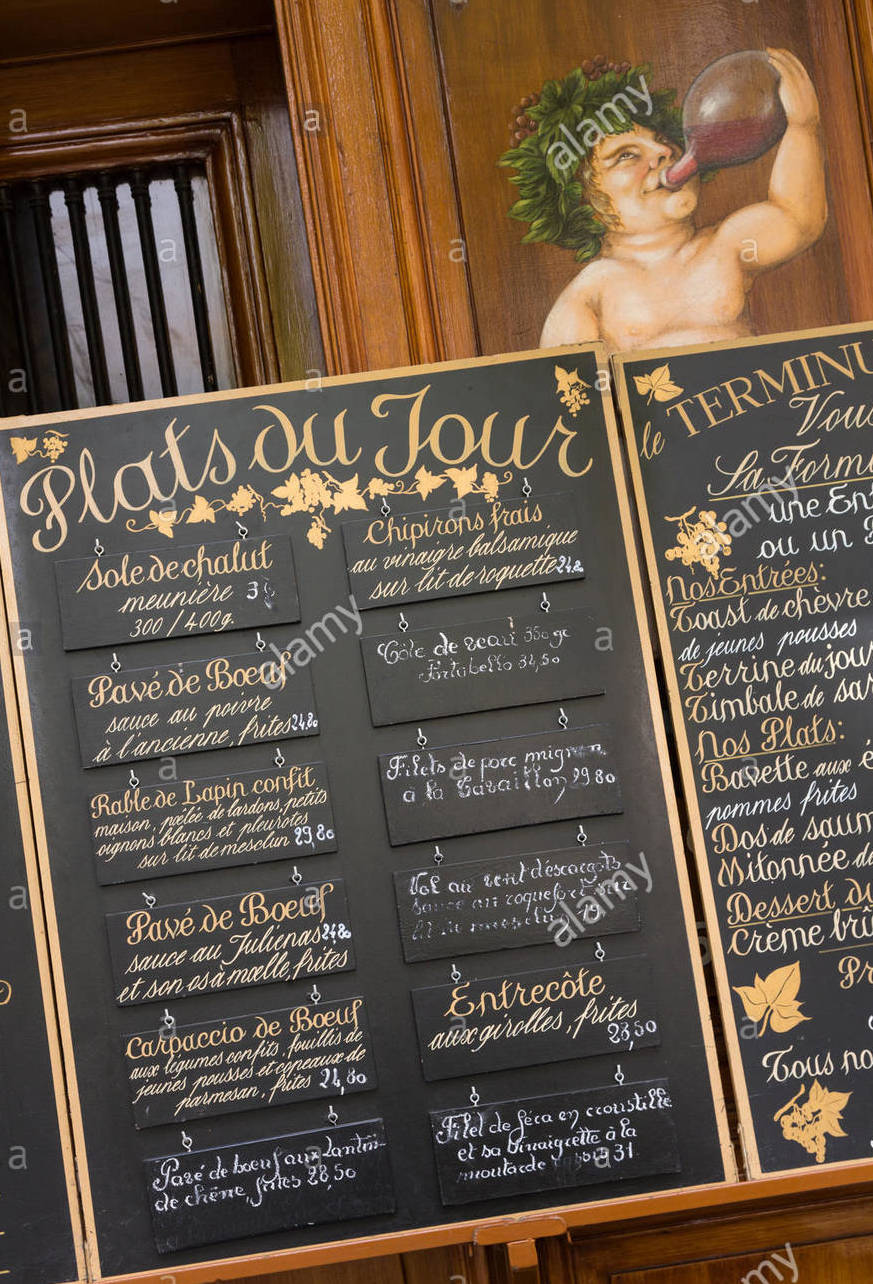 Plats du Jour
Sole de chalut
meunière
300/400g.
Pavé de Boeuf
sauce au poivre
à l'ancienne, frites 24.80
Rable de Lapin confit
maison, poêlée de lardons, petits
oignons blancs et pleurotes
sur lit de mesclun 29,80
Pavé de Boeuf
sauce au Julienas 24,80
et son os à mœlle, frites
Carpaccio de Boeuf
aux légumes confits, fouillis de
jeunes pousses et copeaux de
parmesan, frites 24,80
Pavé de boeuf aux
de chêne, frites 28,50
Chipirons frais
au vinaigre balsamique
sur lit de roquette
Côte de veau 350 gr
Portobello 34,50
Filets de porc mignon
à la 29.80
Vol au vent d'escargots
sauce au roquefort
19
Entrecôte
aux girolles, frites
28,50
Filet de féra en croustille
et sa vinaigrette à la
moutarde 31
le TERMINU
Vous
La Form
une Ent
ou un
Nos Entrées:
Toast de chèvre
de jeunes pousses
Terrine du jour
Timbale de sau
Nos Plats:
Bavette aux é
pommes frites
Dos de saum
Mitonnée de
Dessert du
Crème brû
Pr
Tous no
alamy